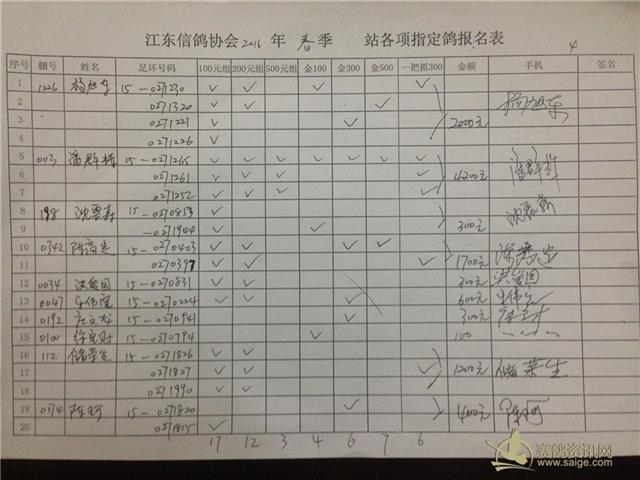 江东信鸽协会2016年 春季 站各项指定鸽报名表
4
序号 棚号 姓名 足环号码 100元组 200元组 500元组 金100 金300 金500 一把抓300 金额 手机 签名
1 1226 杨旭东 15-0271230 ✓ ✓ ✓ ✓
2 0271320 ✓ ✓ ✓ 杨旭东
3 0271221 ✓ ✓ 2000元
4 0271226 ✓
5 0113 潘群 15-0271265 ✓ ✓ ✓ ✓ ✓ ✓ ✓
6 0271261 ✓ ✓ ✓ ✓ 4200元 潘群
7 0271252 ✓ ✓ ✓ ✓
8 198 沈 15-0270853 ✓
9 -0271944 ✓ ✓ 300元
10 0342 陈 15-0270403 ✓ ✓ ✓ ✓
11 0270397 ✓ ✓ ✓ 1700元
12 0034 洪 国 15-0270831 ✓ ✓ 300元
13 0047 15-0270224 ✓ ✓ ✓ 600元
14 0192 15-0270941 ✓ 300元
15 0100 徐宝财 15-0270794 ✓ 100
16 112 储荣生 15-0271826 ✓ ✓
17 0271827 ✓ ✓ ✓ 1200元 储荣生
18 0271990 ✓ ✓
19 0174 陈 15-0271820 ✓ 400元 陈
20 0271815 ✓
17 12 3 4 6 7 6
赛鸽资讯网
www.saige.com